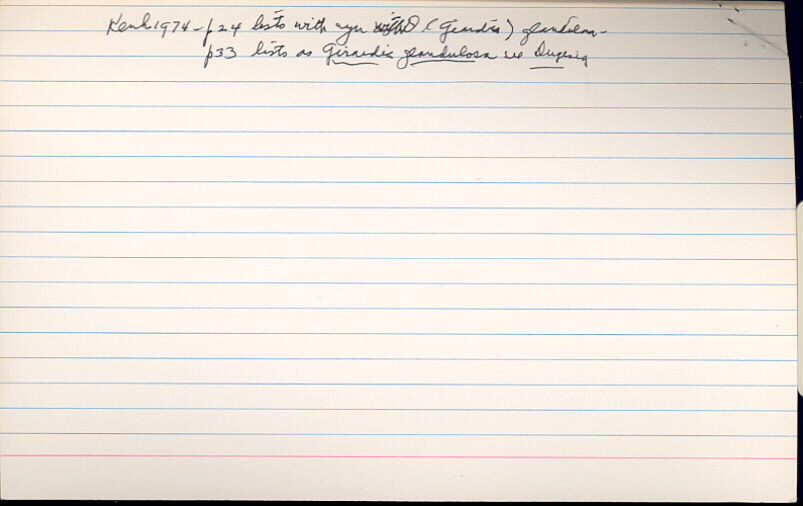 Kenk 1974 - p 24 lists with syn D (Girardia) glandulosa -
p33 lists as Girardia glandulosa see Dugesia